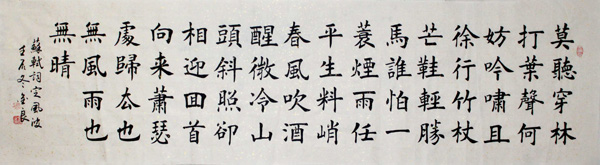 莫聽穿林
打葉聲何
妨吟嘯且
徐行竹杖
芒鞋輕勝
馬誰怕一
蓑煙雨任
平生料峭
春風吹酒
醒微冷山
頭斜照卻
相迎回首
向来蕭瑟
處歸去也
無風雨也
無晴
蘇軾詞定風波
壬辰冬